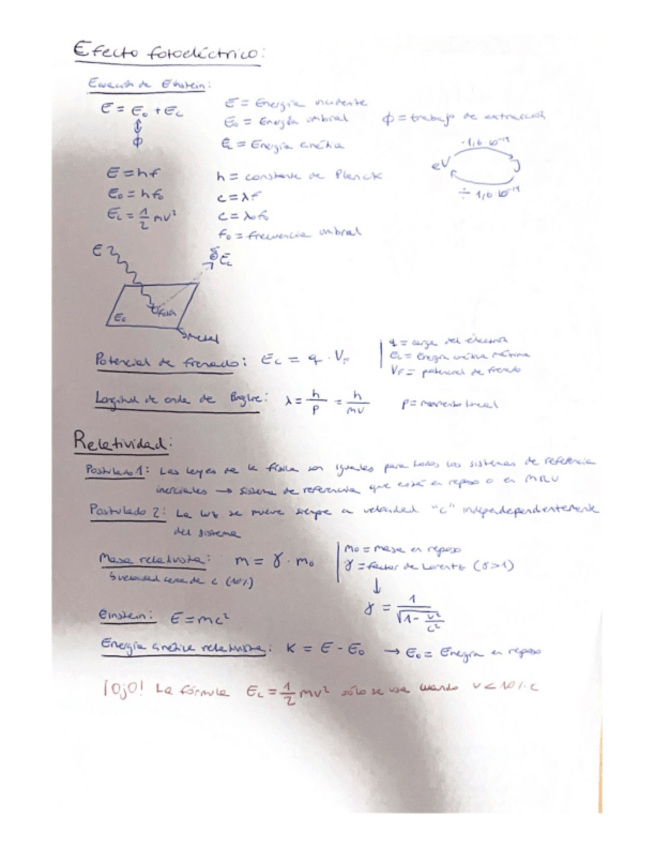 Efecto fotoeléctrico:
Ecuación de Einstein:
E = E₀ + Ec
↕
ϕ
E = Energía incidente
E₀ = Energía umbral
Ec = Energía cinética
ϕ = trabajo de extracción
E = hf
E₀ = hf₀
Ec = 1/2 mv²
h = constante de Planck
c = λf
c = λ₀f₀
f₀ = frecuencia umbral
· 1,6 10⁻¹⁹
eV J
÷ 1,6 10⁻¹⁹
E
Ec
E₀
metal
Potencial de frenado: Ec = q · Vf
q = carga del electrón
Ec = Energía cinética máxima
Vf = potencial de frenado
Longitud de onda de Broglie: λ = h/P = h/mv P = momento lineal
Relatividad:
Postulado 1: Las leyes de la física son iguales para todos los sistemas de referencia
inerciales → sistema de referencia que está en reposo o en MRU
Postulado 2: La luz se mueve siempre en velocidad "c" independependientemente
del sistema
Masa relativista: m = γ · m₀
Si velocidad cerca de c (10%)
m₀ = masa en reposo
γ = factor de Lorentz (γ>1)
↓
γ = 1/√(1 - v²/c²)
Einstein: E = mc²
Energía cinética relativista: K = E - E₀ → E₀ = Energía en reposo
¡OJO! La fórmula Ec = 1/2 mv² sólo se usa cuando v < 10% c